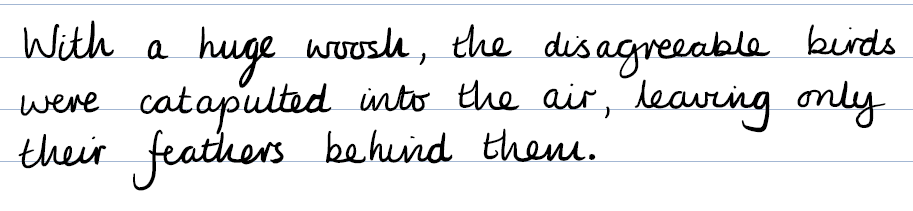 With a huge woosh, the disagreeable birds
were catapulted into the air, leaving only
their feathers behind them.